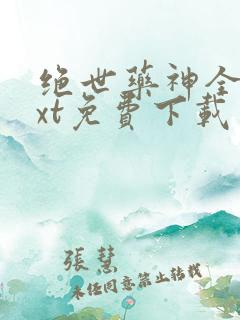 绝世药神全
xt免费下载
張慧
未任同意禁止转载